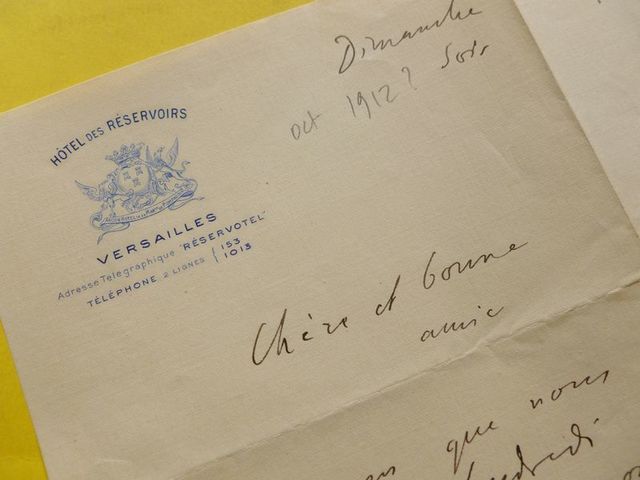 Dimanche
Soir
oct 1912?
HÔTEL DES RÉSERVOIRS
VERSAILLES
Adresse Télégraphique "RÉSERVOTEL"
TÉLÉPHONE 2 LIGNES { 153
1013
Chère et bonne
amie
que nous